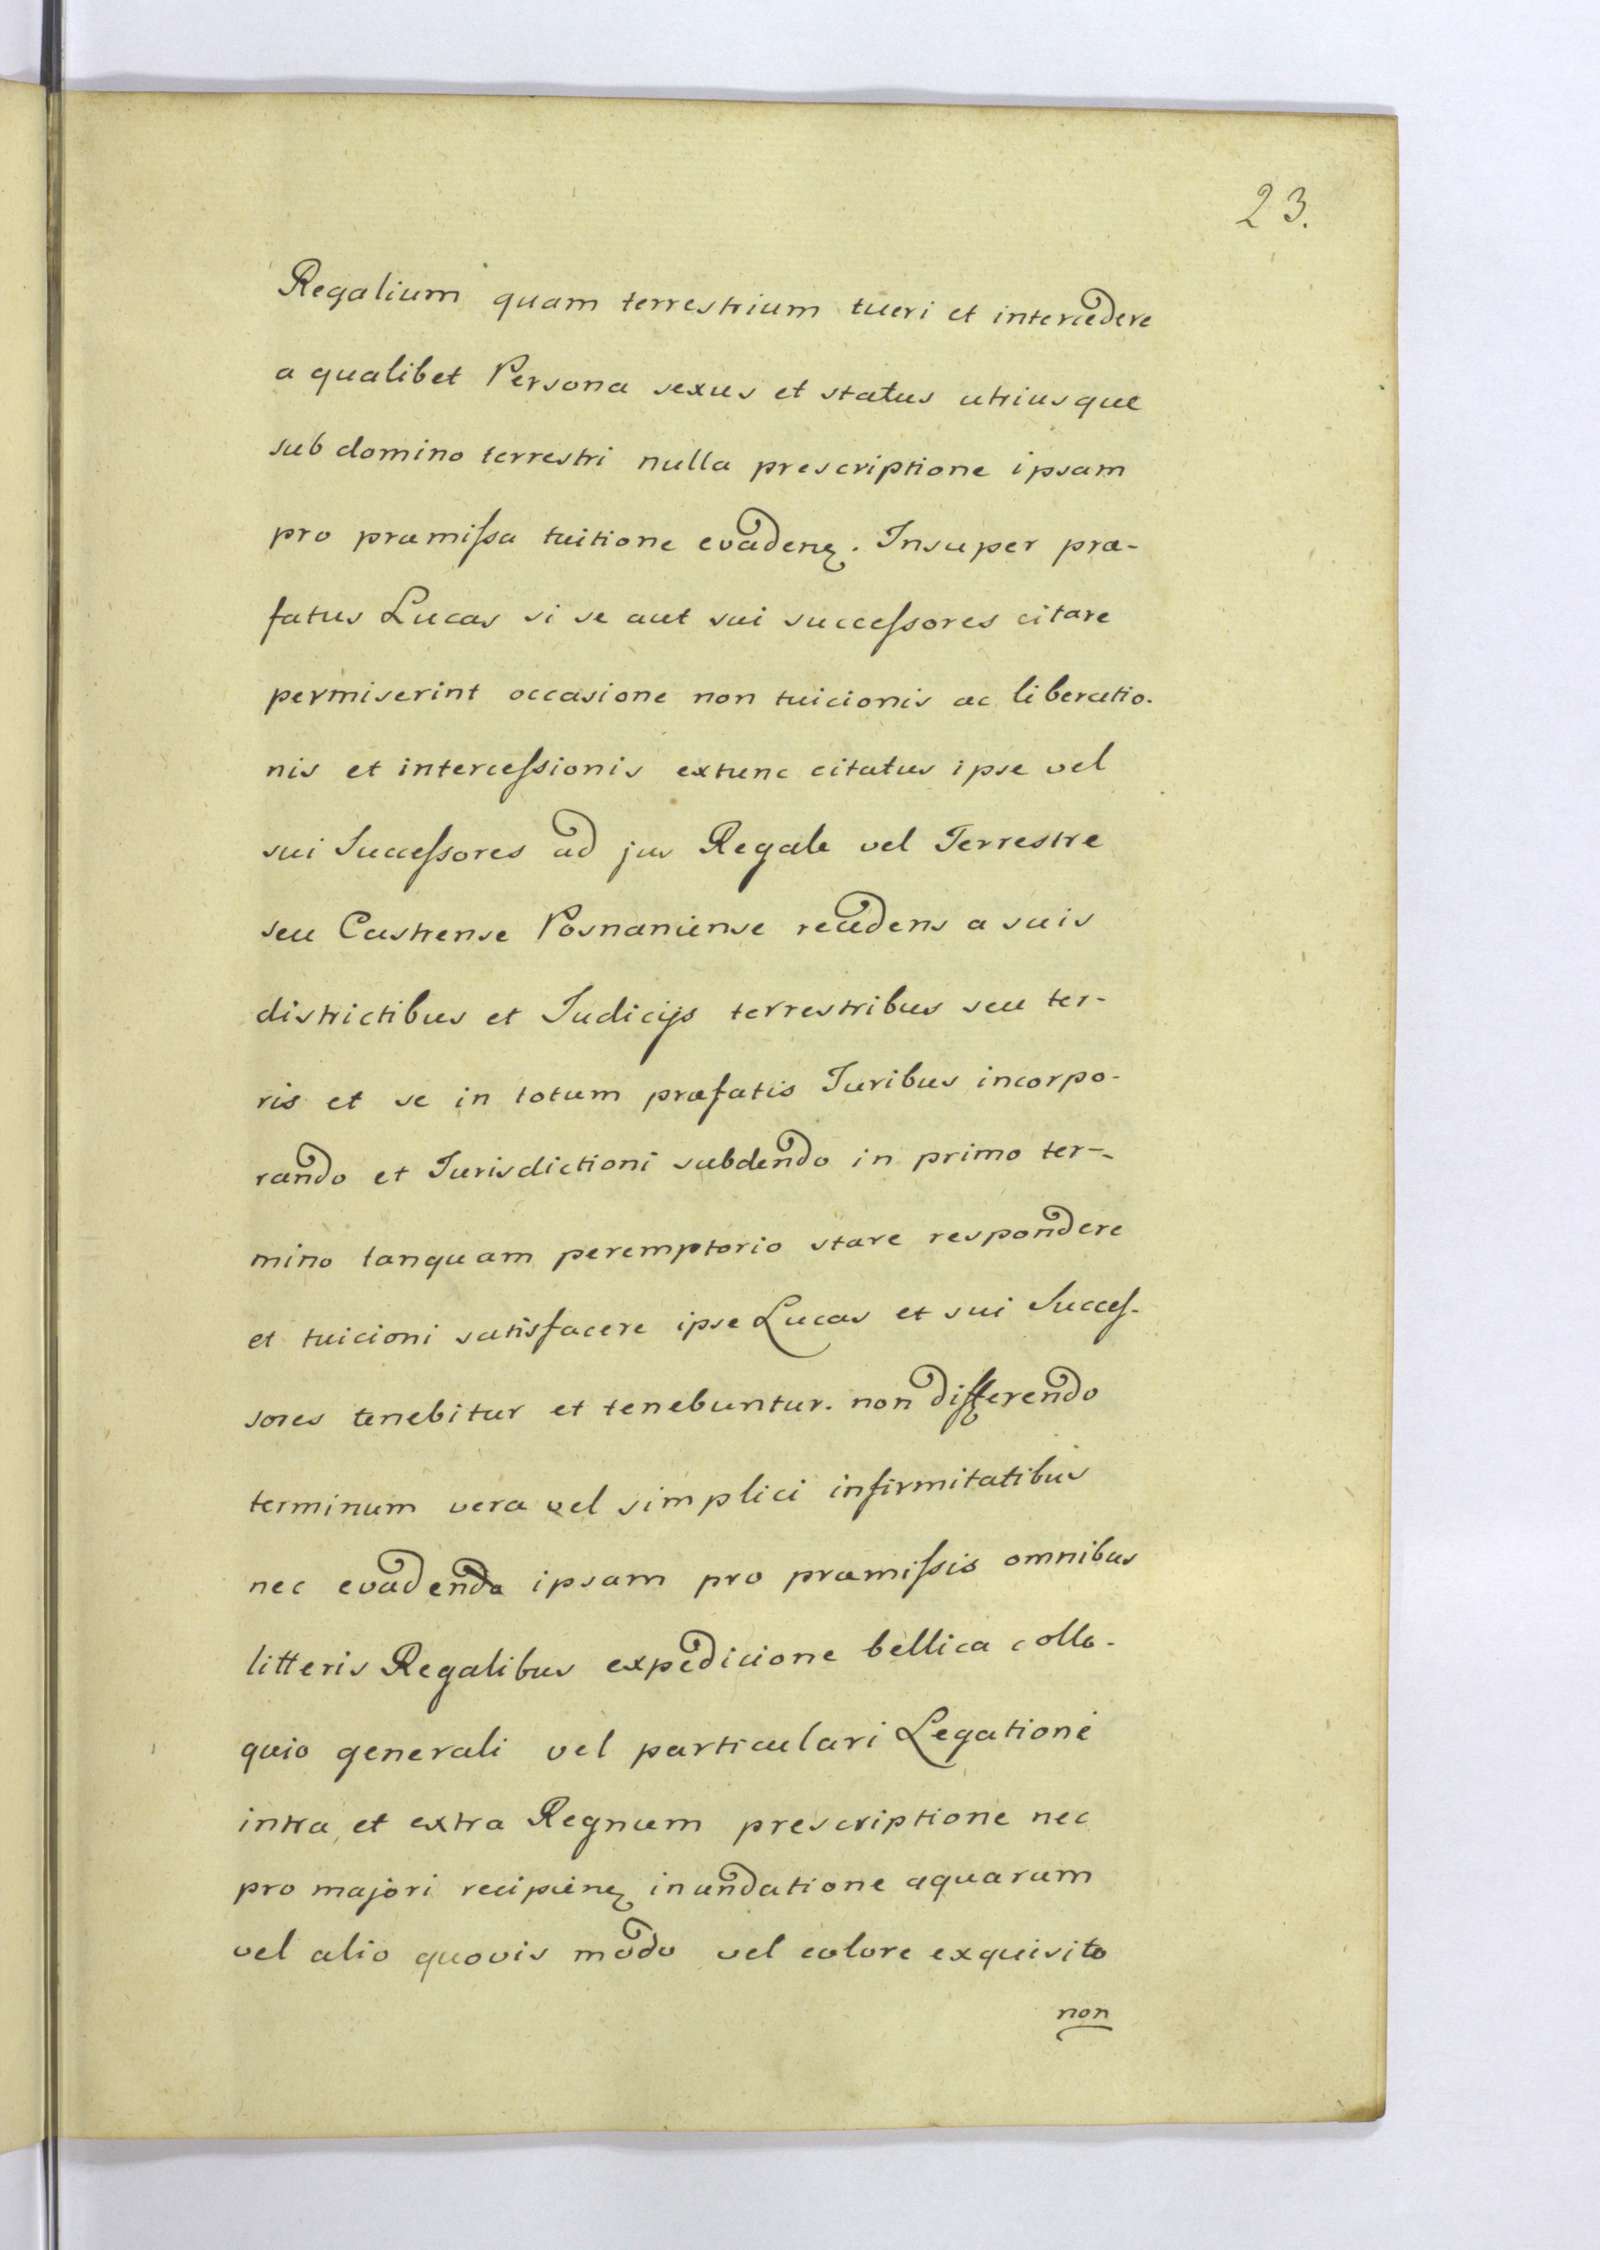 23.
Regalium quam terrestrium tueri et intercedere
a qualibet Persona sexus et status utriusque
sub domino terrestri nulla prescriptione ipsam
pro præmiſsa tuitione evadenꝫ. Insuper præ-
fatus Lucas si se aut sui succeſsores citare
permiserint occasione non tuicionis ac liberatio-
nis et interceſsionis extunc citatus ipse vel
sui Succeſsores ad jus Regale vel Terrestre
seu Castrense Posnaniense recedens a suis
districtibus et Judicijs terrestribus seu ter-
ris et se in totum præfatis Juribus incorpo-
rando et Jurisdictioni subdendo in primo ter-
mino tanquam peremptorio stare respondere
et tuicioni satisfacere ipse Lucas et sui Succeſ-
sores tenebitur et tenebuntur. non differendo
terminum vera vel simplici infirmitatibus
nec evadenda ipsam pro præmiſsis omnibus
litteris Regalibus expedicione bellica collo-
quio generali vel particulari Legatione
intra et extra Regnum prescriptione nec
pro majori recipienꝫ inundatione aquarum
vel alio quovis modo vel colore exquisito
non